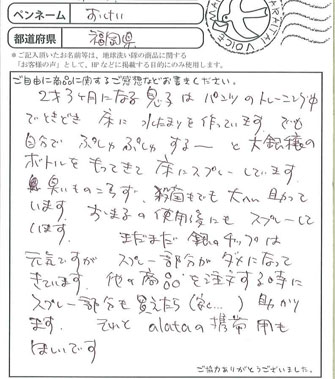 ペンネーム おけい
都道府県 福岡県
※ご記入頂いたお名前等は、地球洗い隊の商品に関する
「お客様の声」として、HPなどに掲載する目的にのみ使用します。
ご自由に商品に関するご感想などお書きください。
2才3ケ月になる息子はパンツのトレーニング中
でときどき床に水たまりを作っています。でも
自分でぷしゅぷしゅするーと大銀様の
ボトルをもってきて床にスプレーしています。
臭いものころず、殺菌までも大へん助かって
います。おまるの使用後にもスプレーして
います。まだまだ銀のチップは
元気ですがスプレー部分がダメになって
きています。他の商品を注文する時に
スプレー部分も買えたら(安く…)助かり
ます。そしてalataの携帯用も
ほしいです
ご協力ありがとうございました。